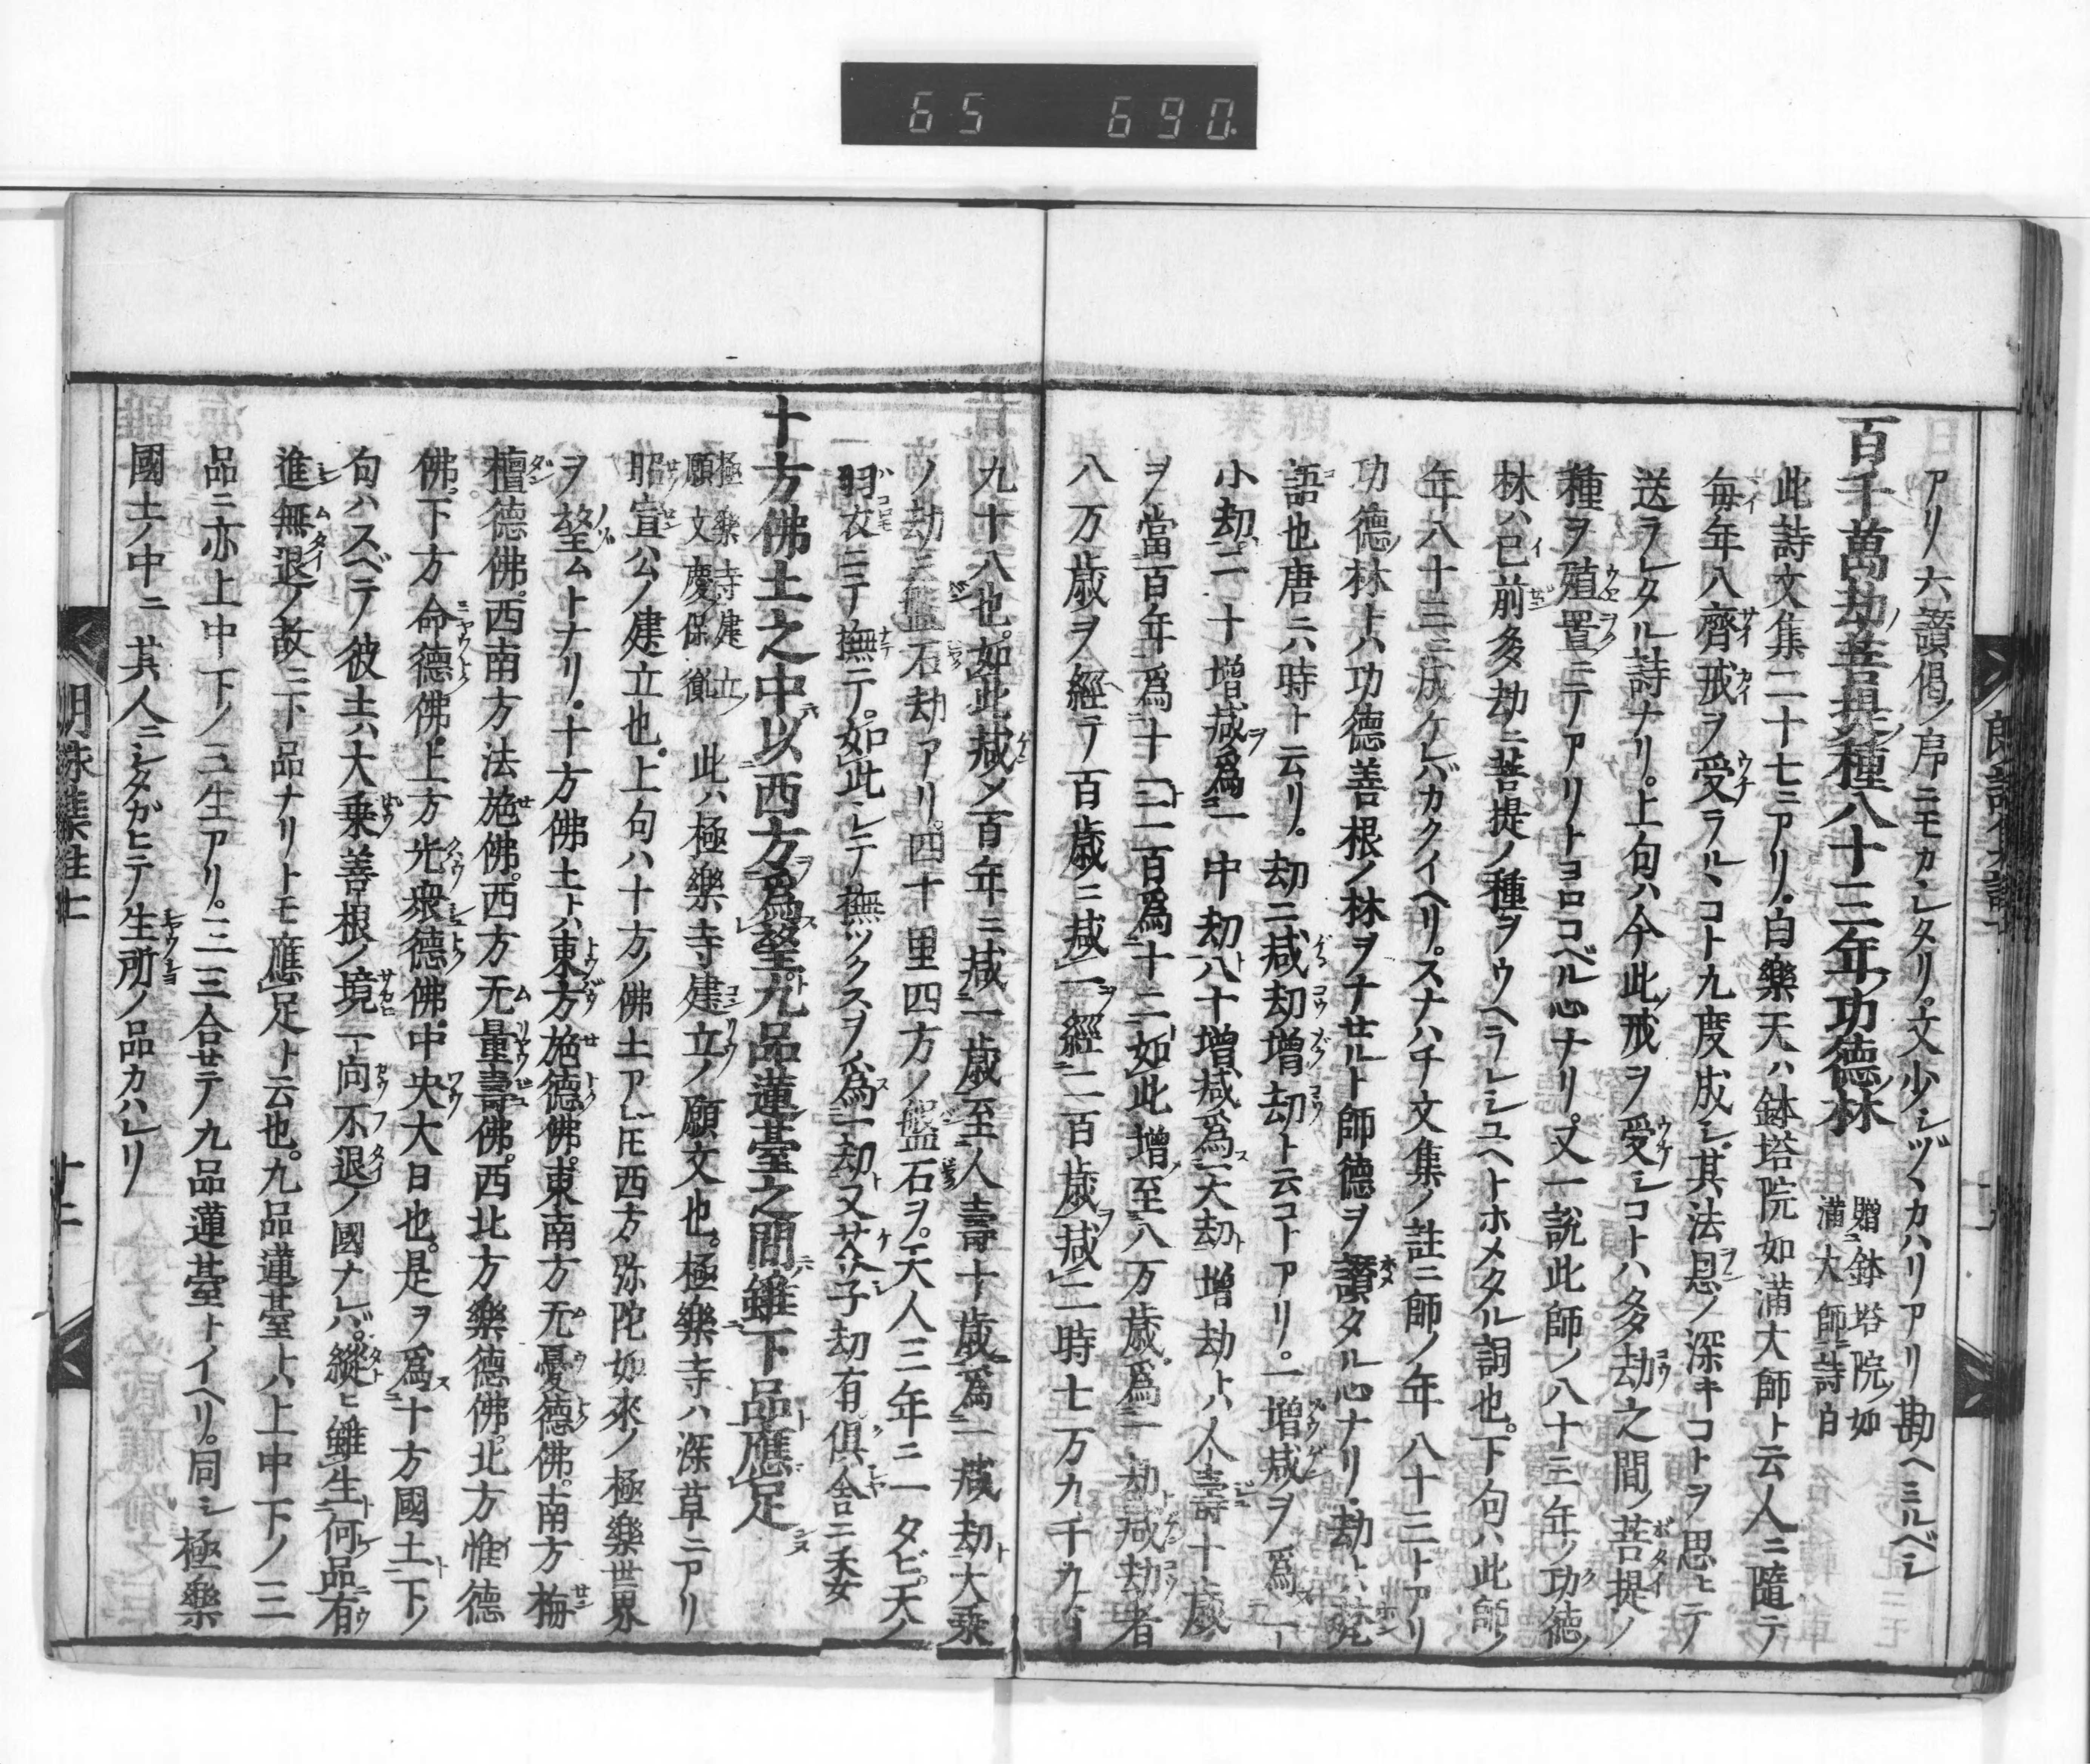 65 690.
アリ六讃偈ノ序ニモカシレタリ。文少シヅヽカハリアリ勘ヘミルベシ
百千萬劫菩提種八十三年功德林 贈鉢塔院如
滿大師詩 白
此詩文集二十七ニアリ。白樂天ハ鉢塔院如滿大師ト云人ニ隨テ
毎年八齊戒ヲ受ラルヽコト九度成シ。其法恩ノ深キコトヲ思ヒテ
送ラレタル詩ナリ。上句ハ今此戒ヲ受シコトハ多劫之間ノ菩提ノ
種ヲ殖置ニテアリトヨロコベル心ナリ。又一說此師ノ八十三年ノ功德ノ
林ハ已前多劫ニ菩提ノ種ヲウヘラレシユヘトホメタル詞也。下句ハ此師ノ
年八十三ニ成ケレバカクイヘリ。スナハチ文集ノ註ニ師ノ年八十三トアリ
功德林トハ功德善根ノ林ヲナセルト師德ヲ讃タル心ナリ。劫トハ梵
語也唐ニハ時ト云リ。劫ニ減劫增劫ト云コトアリ。一增減ヲ爲一
小劫二十增減爲一中劫八十增減爲一大劫增劫トハ人壽十歲
ヲ當百年爲十一二百爲十二如此增至八万歲爲一劫減劫者
八万歲ヲ經テ百歲ニ減一經二百歲減二時七万九千九百
九十八也。如此減メ百年ニ減一歲至人壽十歲爲一減劫大乘
ノ劫ニ盤石劫アリ。四十里四方ノ盤石ヲ。天人三年ニ一タビ。天ノ
羽衣ニテ撫テ。如此シテ撫ツクスヲ爲一劫又芥子劫有俱舍ニ委
十方佛土之中以西方爲望九品蓮臺之間雖下品應足
極樂寺建立
願文 慶保胤 此ハ極樂寺建立ノ願文也。極樂寺ハ深草ニアリ
昭宣公ノ建立也。上句ハ十方ノ佛土アレ𪜈西方弥陀如來ノ極樂世界
ヲ望ムトナリ。十方佛土トハ東方施德佛。東南方无憂德佛。南方栴
檀德佛。西南方法施佛。西方无量壽佛。西北方樂德佛。北方惟德
佛。下方命德佛。上方光衆德佛。中央大日也。是ヲ爲十方國土下ノ
句ハスベテ彼土ハ大乘善根ノ境一向不退ノ國ナレバ。縱ヒ雖生何品有
進無退ノ故ニ下品ナリトモ應足ト云也。九品蓮臺トハ上中下ノ三
品ニ亦上中下ノ三生アリ。三三合セテ九品蓮臺トイヘリ。同シ極樂
國土ノ中ニ其人ニシタガヒテ生所ノ品カハレリ